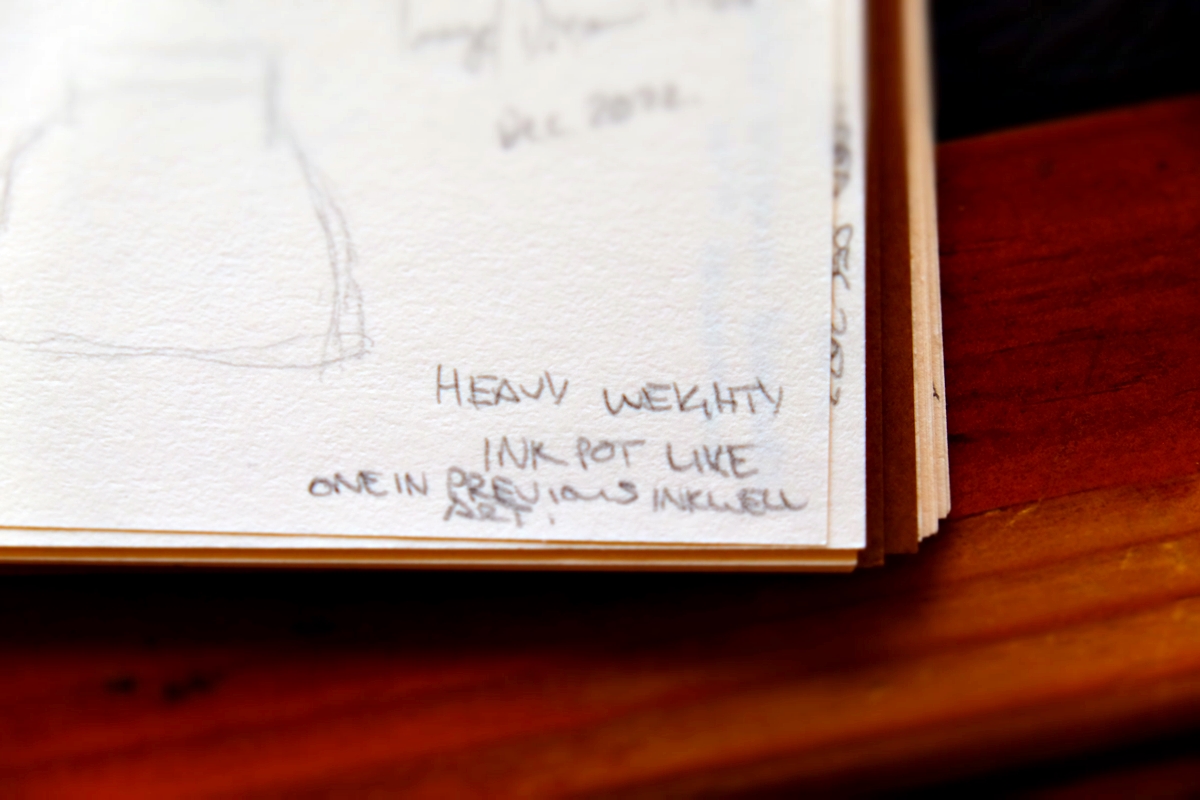 Dec 2022
HEAVY WEIGHTY
INK POT LIKE
ONE IN PREVIOUS INKWELL
ART.
DEC 2022